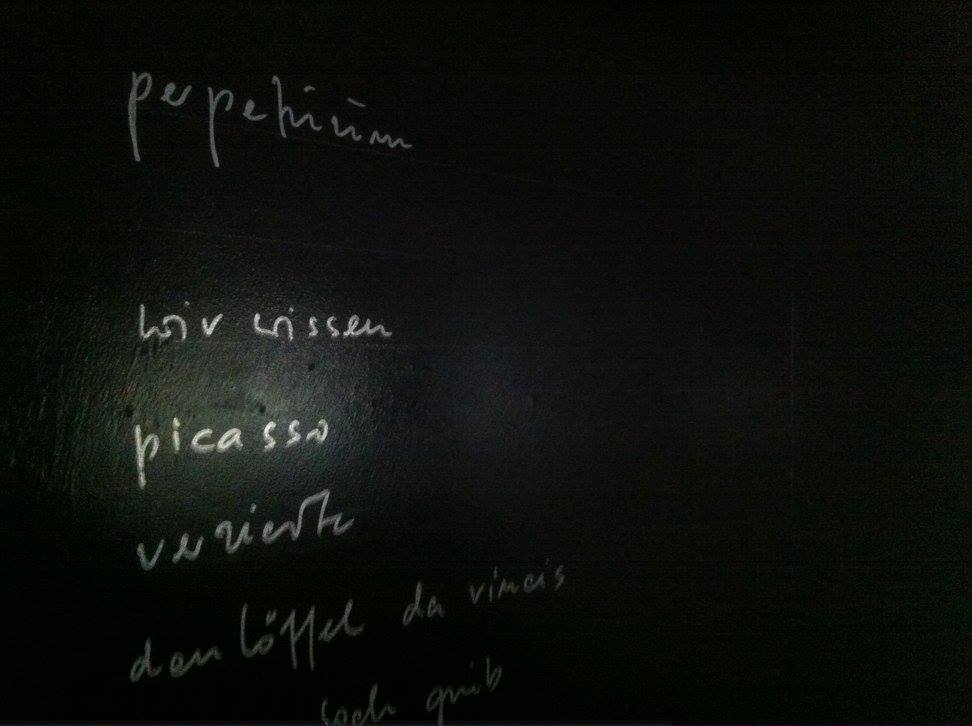 perpetuum
wir wissen
picasso
verzierte
den löffel da vincis